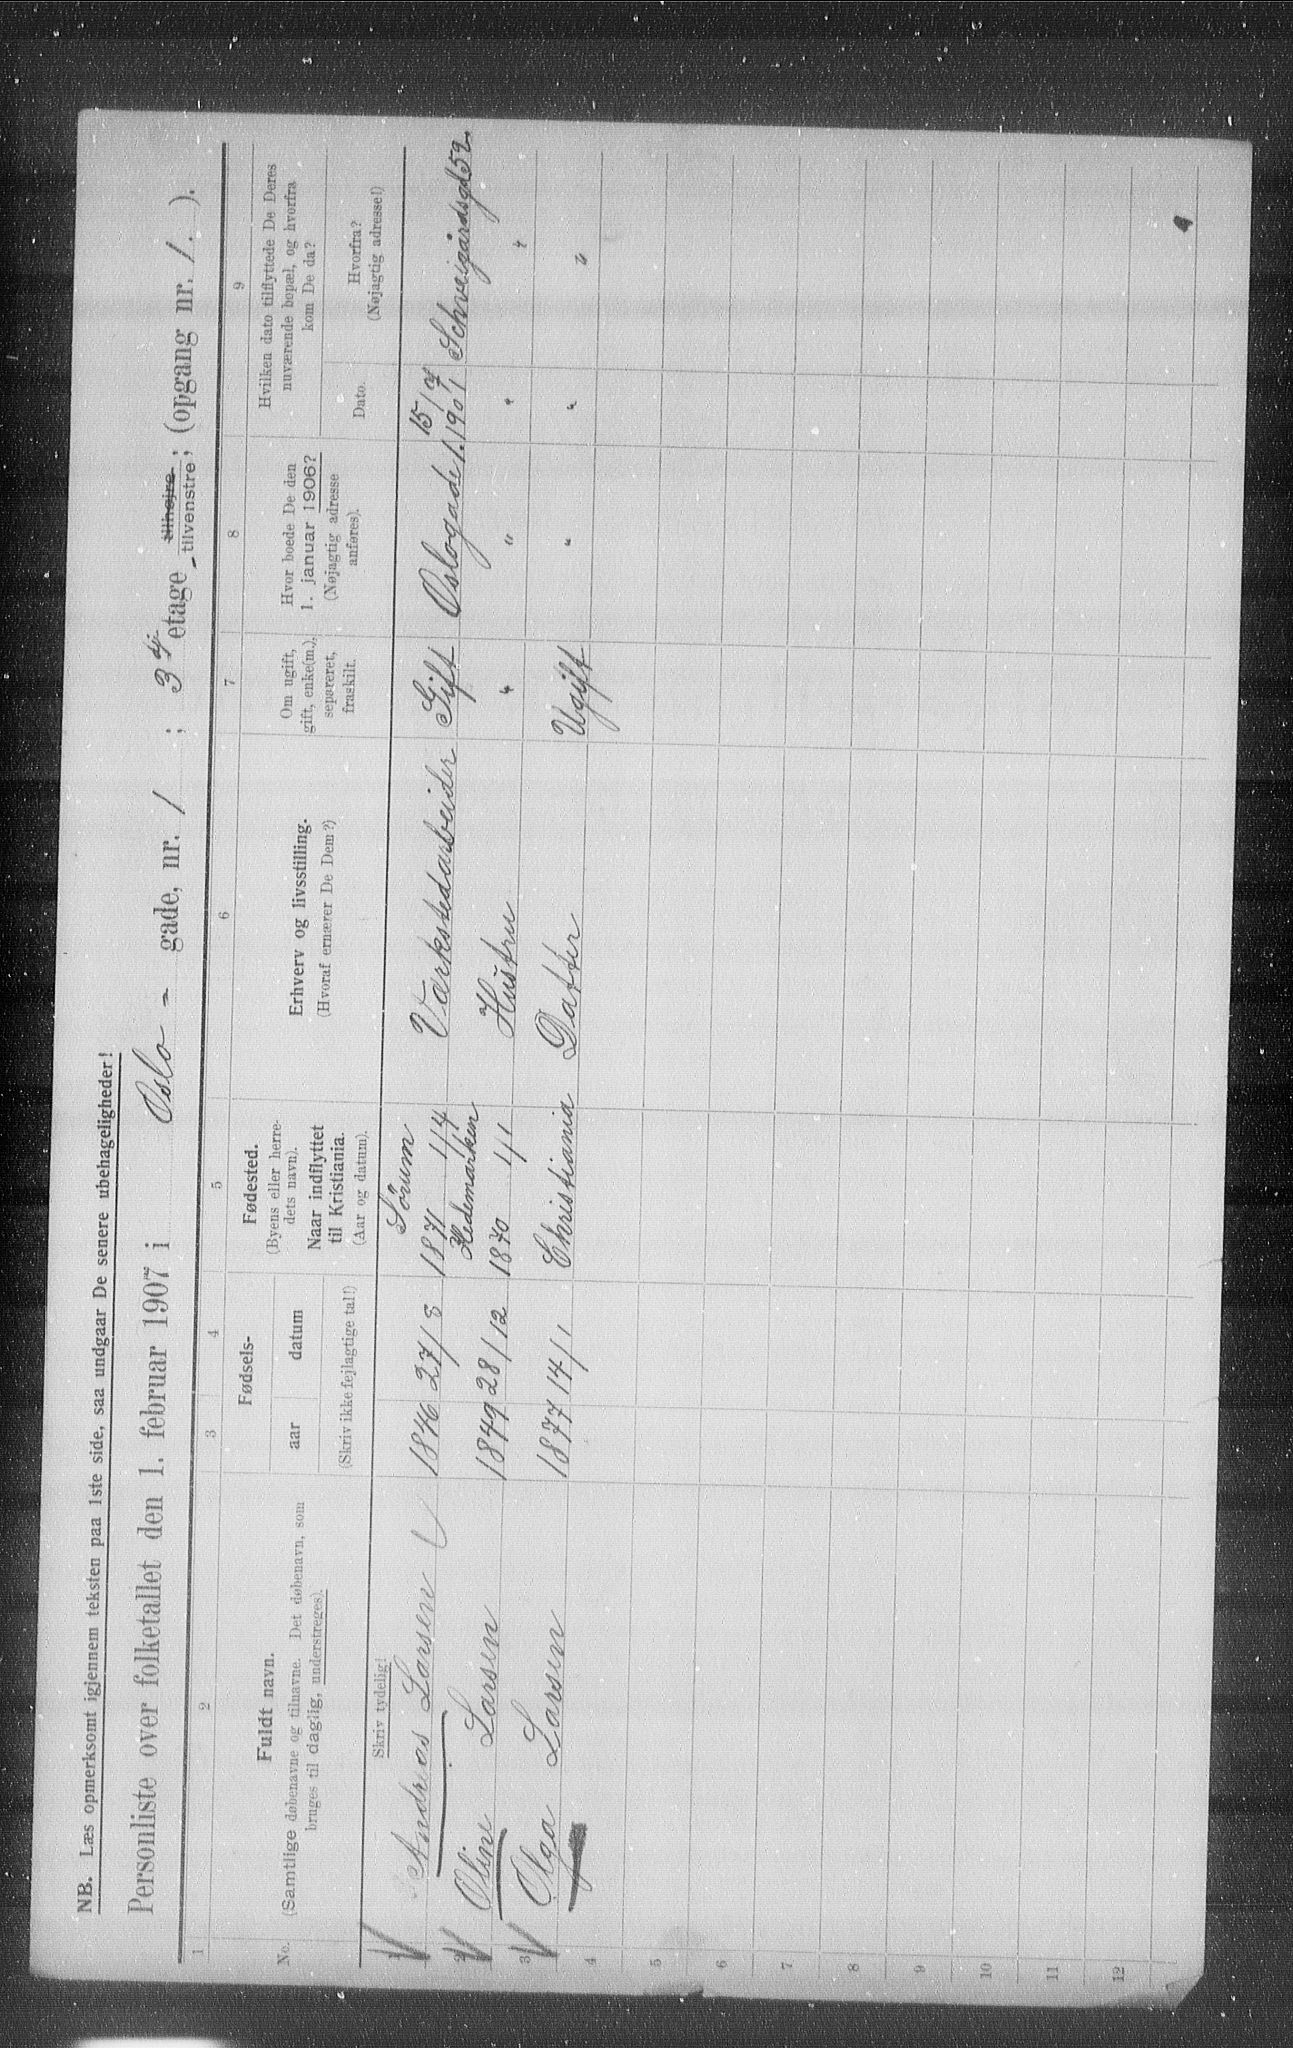 NB. Læs opmerksomt igjennem teksten paa 1ste side, saa undgaar De senere ubehageligheder!
Personliste over folketallet den 1. februar 1907 i Oslo - gade, nr. 1 ; 3dj etage tilhøjre tilvenstre; (opgang nr. 1. ).
1 2 3 4 5 6 7 8 9
No.
Fuldt navn.
(Samtlige døbenavne og tilnavne. Det døbenavn, som
bruges til daglig, understreges).
Skriv tydelig!
Fødsels-
aar datum
(Skriv ikke fejlagtige tal!)
Fødested.
(Byens eller herre-
dets navn).
Naar indflyttet
til Kristiania.
(Aar og datum).
Erhverv og livsstilling.
(Hvoraf ernærer De Dem?)
Om ugift,
gift, enke(m.),
separeret,
fraskilt.
Hvor boede De den
1. januar 1906?
(Nøjagtig adresse
anføres).
Hvilken dato tilflyttede De Deres
nuværende bopæl, og hvorfra
kom De da?
Dato.
Hvorfra?
(Nøjagtig adresse!)
1 Andreas Larsen 1846 27/8 Sörum 1871 1/4 Værkstedarbeider Gift Oslogade 1. 15/4 1901 Schveigårdsgd 52.
2 Oline Larsen 1849 28/12 Hedemarken 1870 1/1 Hustru " " " "
3 Olga Larsen 1877 14/1 Christiania Datter Ugift " " "
4
5
6
7
8
9
10
11
12